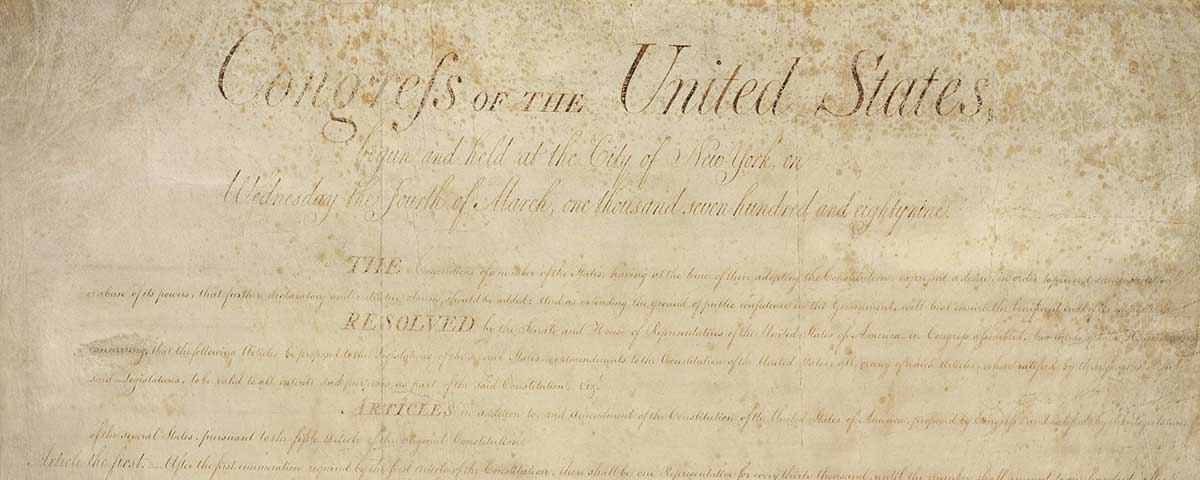 Congreſs OF THE United States,
begun and held at the City of New York, on
Wednesday the Fourth of March, one thousand seven hundred and eighty nine.
THE Conventions of a number of the States, having at the time of their adopting the Constitution, expreſsed a desire, in order to prevent misconstruction
or abuse of its powers, that further declaratory and restrictive clauses should be added: And as extending the ground of public confidence in the Government, will best ensure the beneficent ends of its
RESOLVED by the Senate and House of Representatives of the United States of America, in Congreſs aſsembled, two thirds of both Houses
concurring, that the following Articles be proposed to the Legislatures of the several States, as amendments to the Constitution of the United States, all, or any of which Articles, when ratified by three fourths of the
said Legislatures, to be valid to all intents and purposes, as part of the said Constitution. Viz.
ARTICLES in addition to, and amendment of the Constitution of the United States of America, proposed by Congreſs and ratified by the Legislatures
of the several States, pursuant to the fifth Article of the original Constitution.
Article the first. After the first enumeration required by the first Article of the Constitution, there shall be one Representative for every thirty thousand, until the number shall amount to one hundred, after